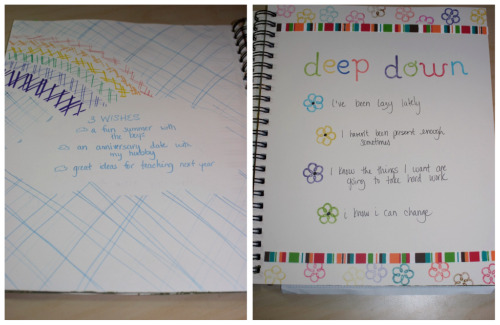 3 WISHES
a fun summer with
the boys
an anniversary date with
my hubby
great ideas for teaching next year
deep down
i've been lazy lately
I haven't been present enough
sometimes
I know the things I want are
going to take hard work
i know i can change